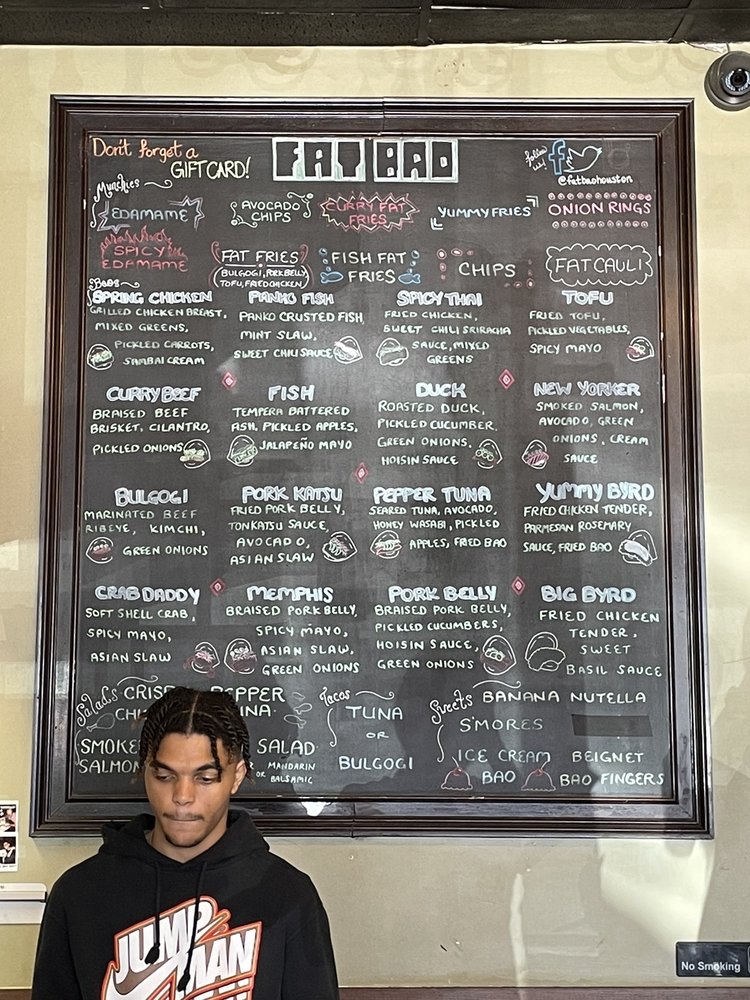 Don't forget a
GIFT CARD!
FAT BAO
follow us!
@fatbaohouston
Munchies
EDAMAME
AVOCADO
CHIPS
CURRY FAT
FRIES
YUMMY FRIES
ONION RINGS
SPICY
EDAMAME
FAT FRIES
BULGOGI, PORK BELLY,
TOFU, FRIED CHICKEN
FISH FAT
FRIES
CHIPS
FAT CAULI
Baos
SPRING CHICKEN
GRILLED CHICKEN BREAST,
MIXED GREENS,
PICKLED CARROTS,
SAMBAI CREAM
PANKO FISH
PANKO CRUSTED FISH,
MINT SLAW,
SWEET CHILI SAUCE
SPICY THAI
FRIED CHICKEN,
SWEET CHILI SRIRACHA
SAUCE, MIXED
GREENS
TOFU
FRIED TOFU,
PICKLED VEGETABLES,
SPICY MAYO
CURRY BEEF
BRAISED BEEF
BRISKET, CILANTRO,
PICKLED ONIONS
FISH
TEMPERA BATTERED
FISH, PICKLED APPLES,
JALAPEÑO MAYO
DUCK
ROASTED DUCK,
PICKLED CUCUMBER,
GREEN ONIONS,
HOISIN SAUCE
NEW YORKER
SMOKED SALMON,
AVOCADO, GREEN
ONIONS, CREAM
SAUCE
BULGOGI
MARINATED BEEF
RIBEYE, KIMCHI,
GREEN ONIONS
PORK KATSU
FRIED PORK BELLY,
TONKATSU SAUCE,
AVOCADO,
ASIAN SLAW
PEPPER TUNA
SEARED TUNA, AVOCADO,
HONEY WASABI, PICKLED
APPLES, FRIED BAO
YUMMY BYRD
FRIED CHICKEN TENDER,
PARMESAN ROSEMARY
SAUCE, FRIED BAO
CRAB DADDY
SOFT SHELL CRAB,
SPICY MAYO,
ASIAN SLAW
MEMPHIS
BRAISED PORK BELLY,
SPICY MAYO,
ASIAN SLAW,
GREEN ONIONS
PORK BELLY
BRAISED PORK BELLY,
PICKLED CUCUMBERS,
HOISIN SAUCE,
GREEN ONIONS
BIG BYRD
FRIED CHICKEN
TENDER,
SWEET
BASIL SAUCE
Salads
PEPPER
SALAD
OR MANDARIN
BALSAMIC
Tacos
TUNA
OR
BULGOGI
Sweets
BANANA NUTELLA
S'MORES
ICE CREAM
BAO
BEIGNET
BAO FINGERS
JUMP
MAN
No Smoking